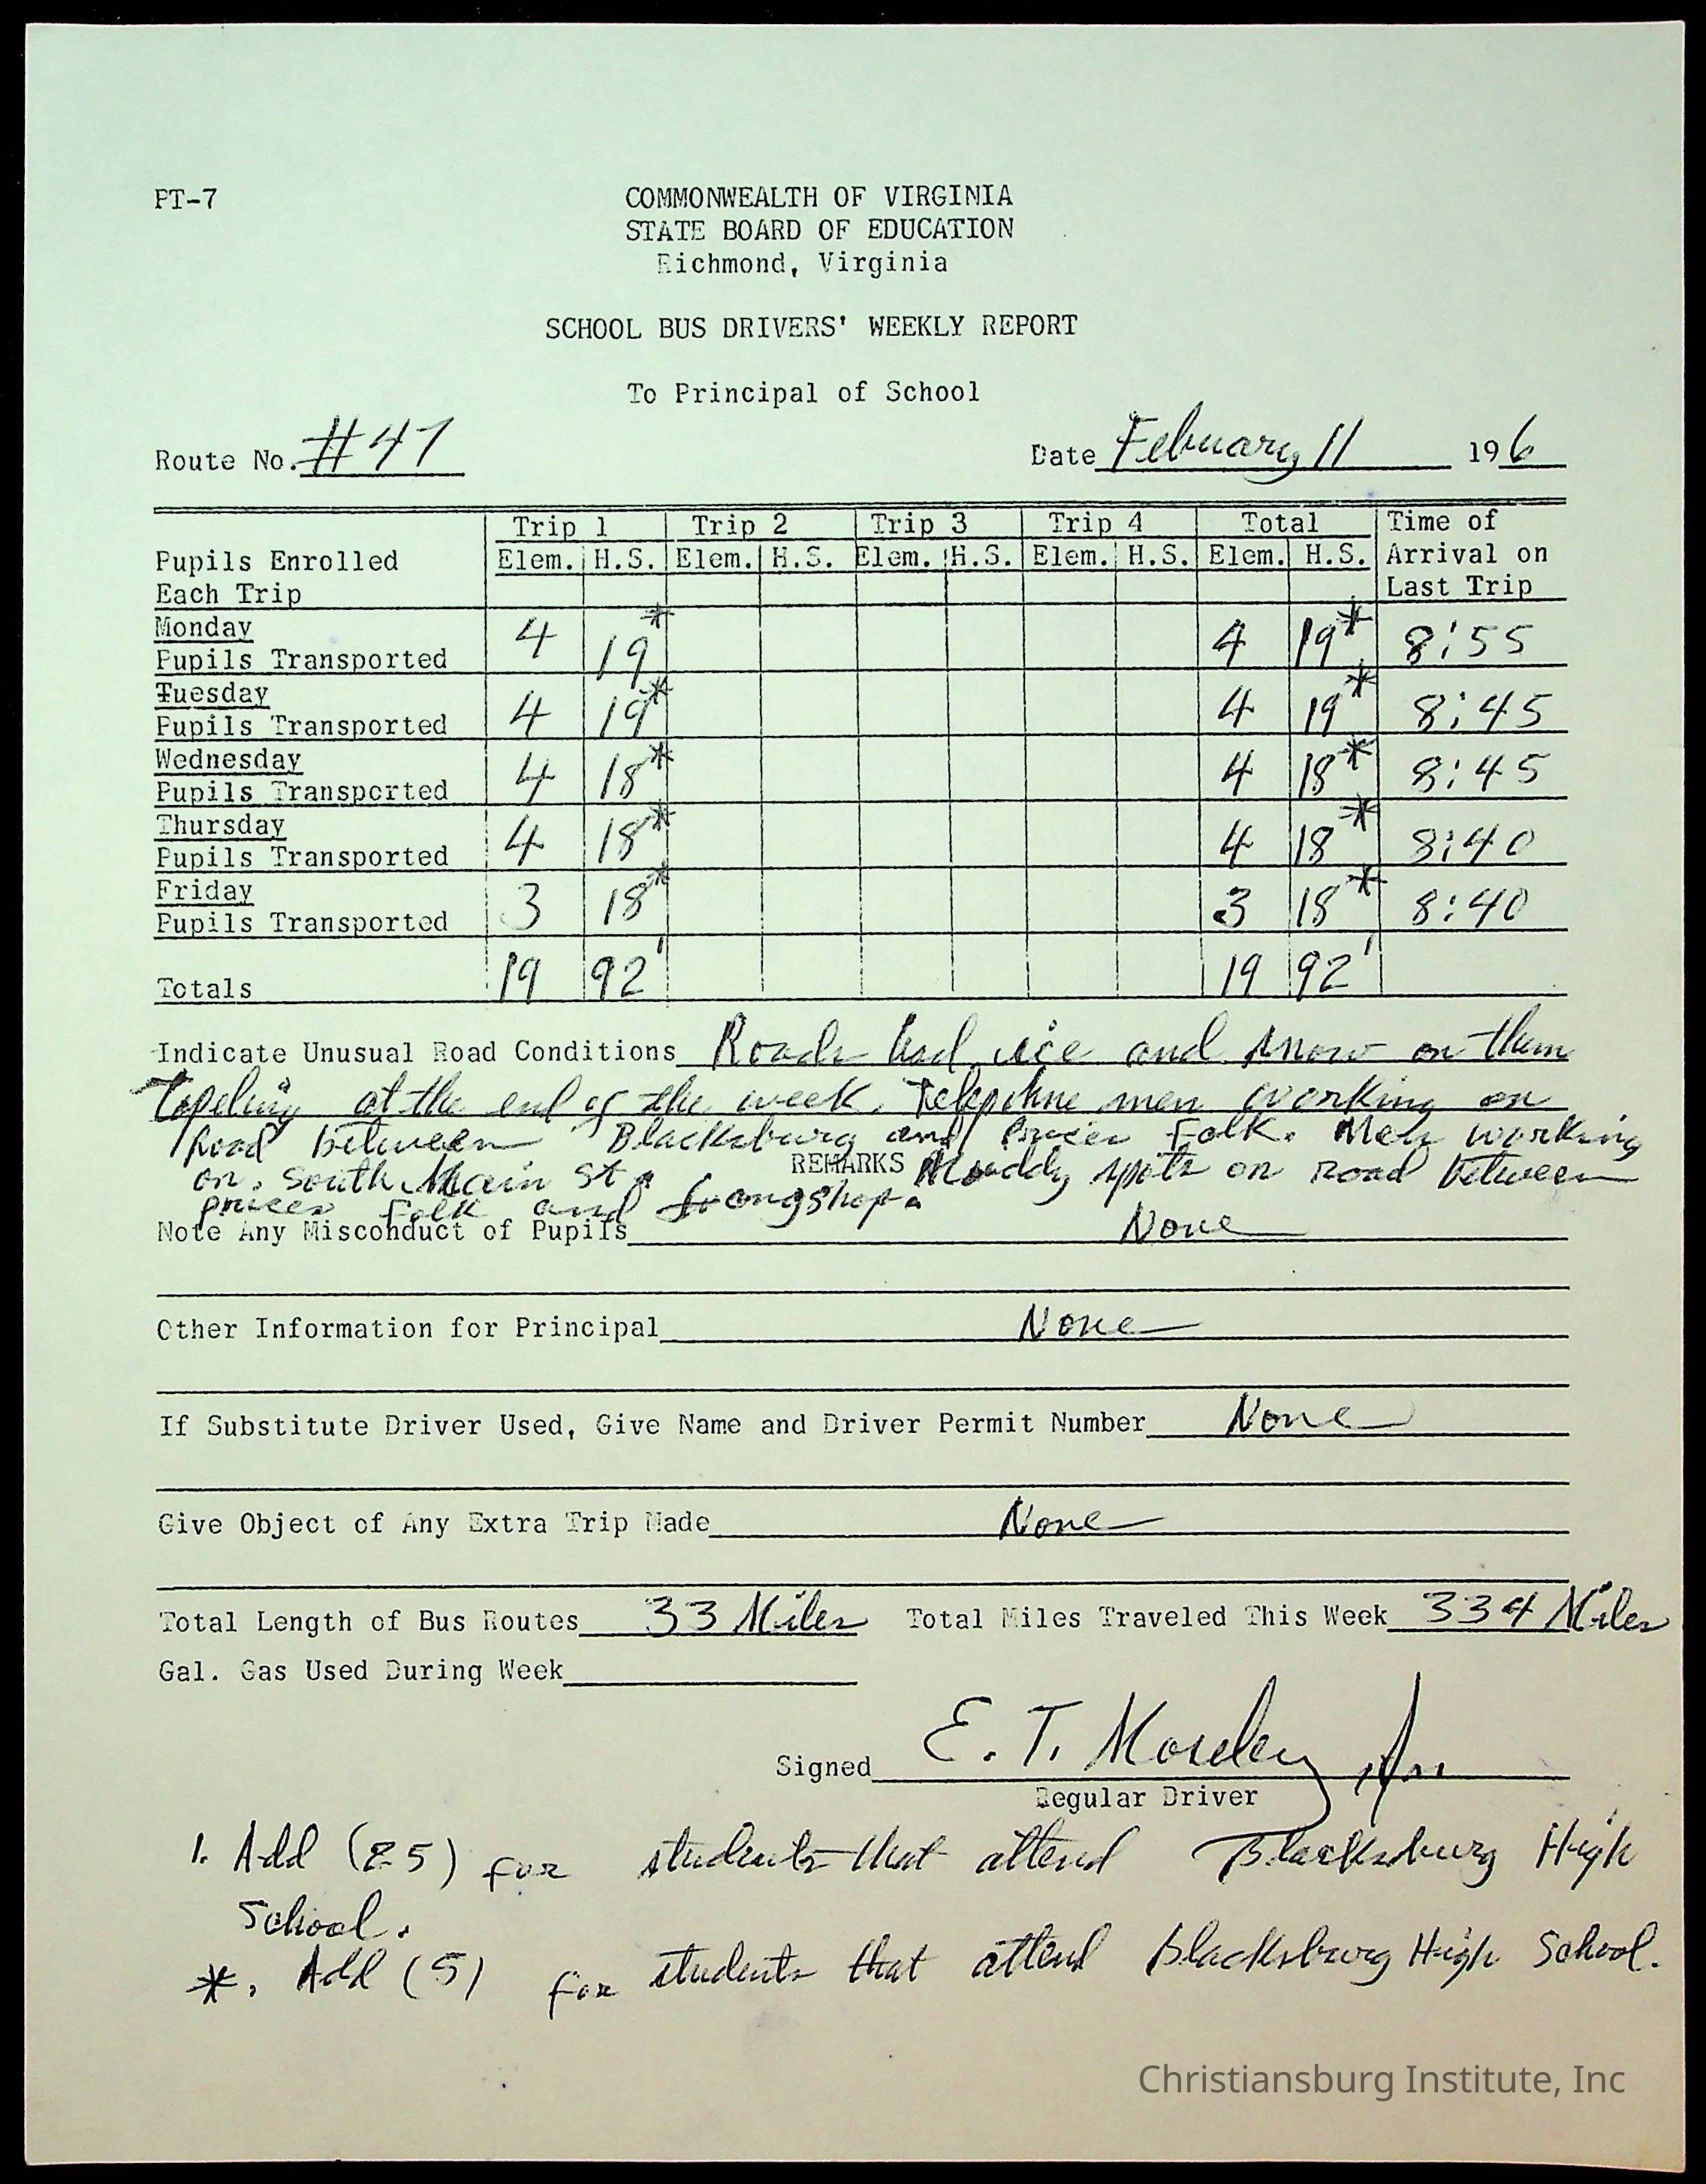 PT-7
COMMONWEALTH OF VIRGINIA
STATE BOARD OF EDUCATION
Richmond, Virginia
SCHOOL BUS DRIVERS' WEEKLY REPORT
To Principal of School
Route No. #47 Date February 11 196
Trip 1 Trip 2 Trip 3 Trip 4 Total Time of
Pupils Enrolled Elem. H.S. Elem. H.S. Elem. H.S. Elem. H.S. Elem. H.S. Arrival on
Each Trip Last Trip
Monday
Pupils Transported 4 19* 4 19* 8:55
Tuesday
Pupils Transported 4 19* 4 19* 8:45
Wednesday
Pupils Transported 4 18* 4 18* 8:45
Thursday
Pupils Transported 4 18* 4 18* 8:40
Friday
Pupils Transported 3 18* 3 18* 8:40
Totals 19 92' 19 92'
Indicate Unusual Road Conditions Roads had ice and snow on them
at the end of the week. Telephne men working on
Road between Blacksburg and prices folk. Men working
on South Main St. REMARKS Muddy spots on road between
prices folk and
Note Any Misconduct of Pupils None
Other Information for Principal None
If Substitute Driver Used, Give Name and Driver Permit Number None
Give Object of Any Extra Trip Made None
Total Length of Bus Routes 33 Miles Total Miles Traveled This Week 334 Miles
Gal. Gas Used During Week
Signed E. T. Moseley Jr.
Regular Driver
1. Add (25) for students that attend Blacksburg High
School.
*. Add (5) for students that attend Blacksburg High School.
Christiansburg Institute, Inc